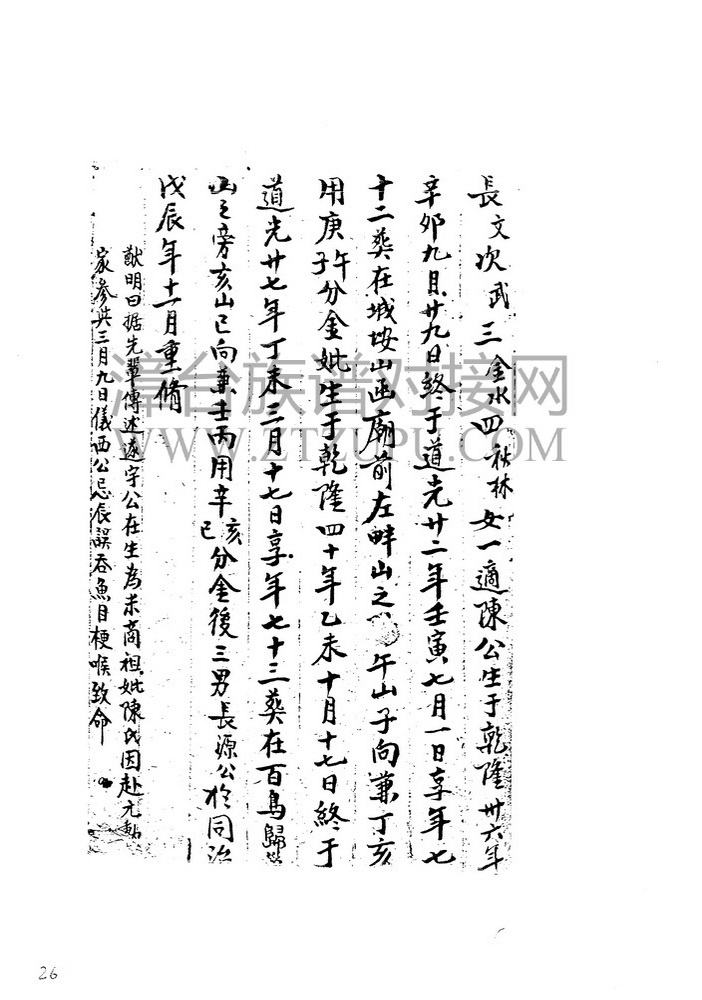 長文次武三金水四秋林女一適陳公生于乾隆卅六年
辛卯九月廿九日終于道光廿二年壬寅七月一日享年七
十二葬在城垵山函廟前左畔山之 午山子向兼丁亥
用庚午庚子分金妣生于乾隆四十年乙未十月十七日終于
道光廿七年丁未三月十七日享年七十三葬在百鳥歸
山之旁亥山巳向兼壬丙用辛亥辛巳分金後三男長源公於同治
戊辰年十一月重脩
猷明曰据先輩傳述遠宇公在生為米商祖妣陳氏因赴
家參共三月九日儀西公忌辰誤吞魚目梗喉致命
漳台族谱对接网
WWW.ZTZUPU.COM
26